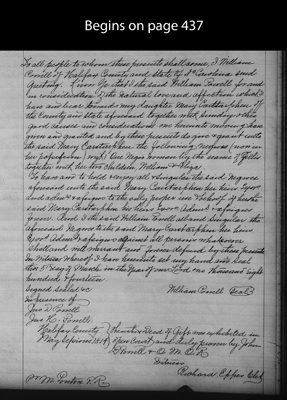 Begins on page 437
To all people to whom these presents shall come, I William
Powell of Halifax County and State of No Carolina send
Greeting. Know Ye that I the said William Powell for and
in consideration of the natural love and affection which I
have and bear towards my daughter Mary Carstarphen of
the County and State aforesaid together with sundry other
good causes and considerations me hereunto moving have
given and granted and by these presents do give & grant unto
the said Mary Carstarphen the following Negroes (now in
her possession) One Negro woman by the name of
together with her two children, William &
To have and to hold & enjoy all & Singular the said Negroes
aforesaid unto the said Mary Carstarphen her heirs
and to the only proper use & behoof of her the
said Mary Carstarphen her heirs &
And I the said William Powell all and Singular the
aforesaid Negroes to the said Mary Carstarphen her heirs
against all persons whatever
Shall and will warrant and forever defend by these presents
In Witness whereof I have hereunto set my hand and Seal
this day of March in the Year of our Lord one thousand eight
hundred & fourteen
Signed Sealed &c William Powell Seal
In presence of
Jno D Powell
Jno H. Powell
Halifax County Then this Deed of Gift was exhibited in
May Session 1814 open court and duly proven by John
Powell & O. M. O. R.
Witness
Richard Eppes Clk